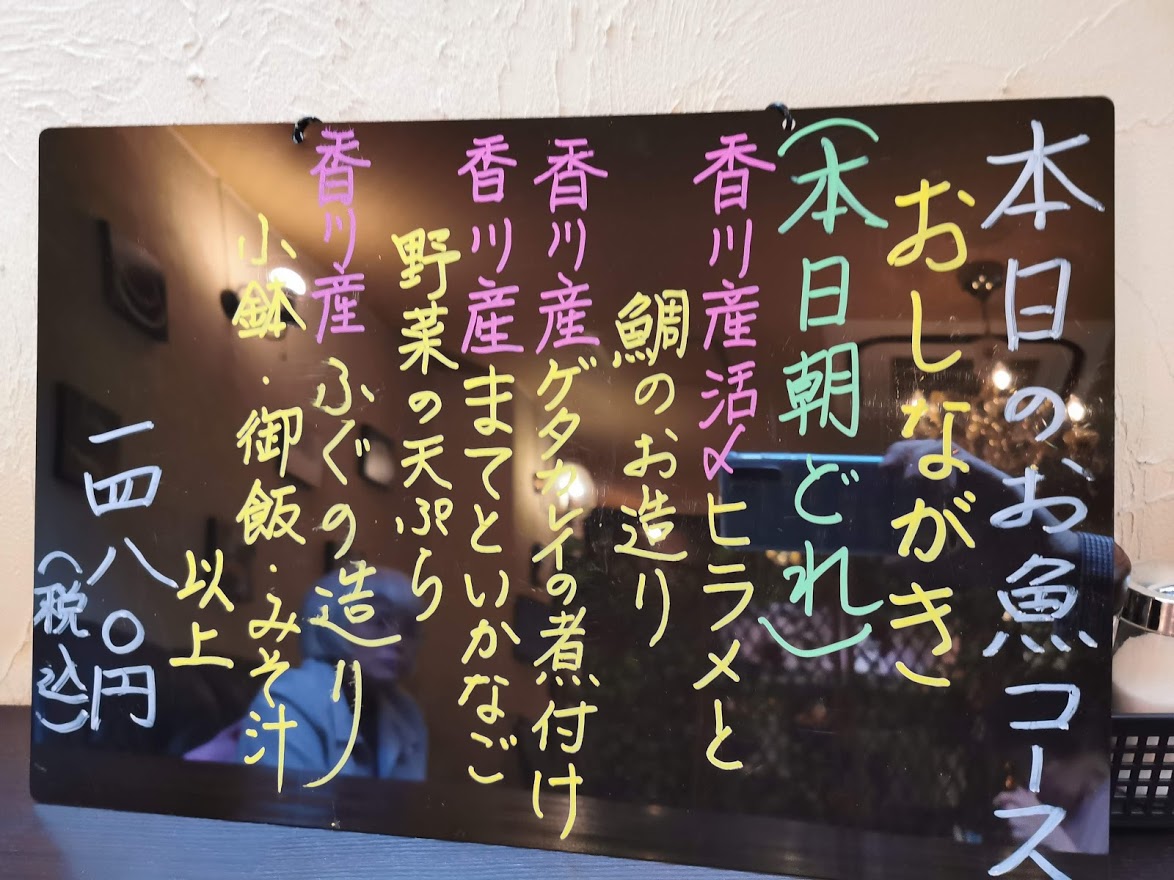 本日のお魚コース
おしながき
（本日朝どれ）
香川産活〆ヒラメと
鯛のお造り
香川産ゲタカレイの煮付け
香川産まてといかなご
野菜の天ぷら
香川産ふぐの造り
小鉢・御飯・みそ汁
以上
一四八〇円
（税込）